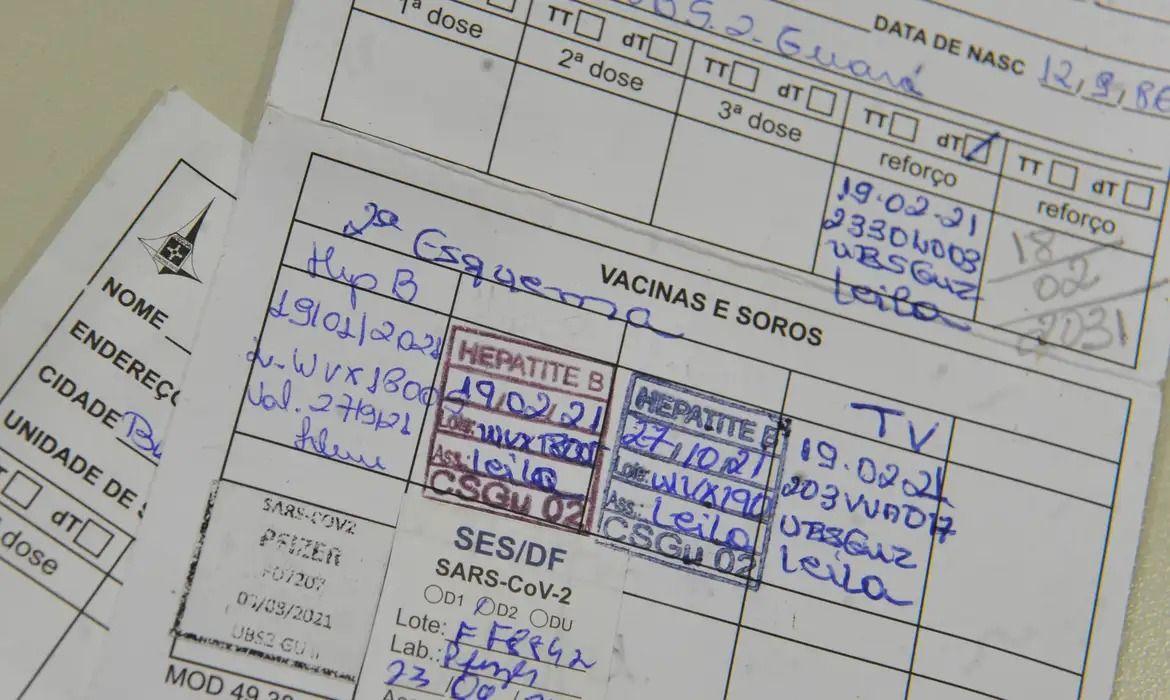 UBS.2-Guará
DATA DE NASC 12,9,86
TT dT
TT dT
TT dT
TT dT
1ª dose
2ª dose
3ª dose
reforço
reforço
19.02.21
UBSGU2
Leila
18
02
2031
2º Esquema
VACINAS E SOROS
Hep B
19/01/2021
Val. 27/9/21
HEPATITE B
19,02,21
Lote:
Ass.: Leila
CSGu 02
HEPATITE B
27,10,21
Lote: WVX190
Ass.: Leila
CSGu 02
TV
19.02.21
UBSGU2
Leila
SARS-COV2
PFIZER
UBS2 GU
SES/DF
SARS-CoV-2
D1 D2 DU
Lote:
Lab.: Pfizer
23
MOD 49
NOME
ENDEREÇ
CIDADE
UNIDADE DE
dT
dose